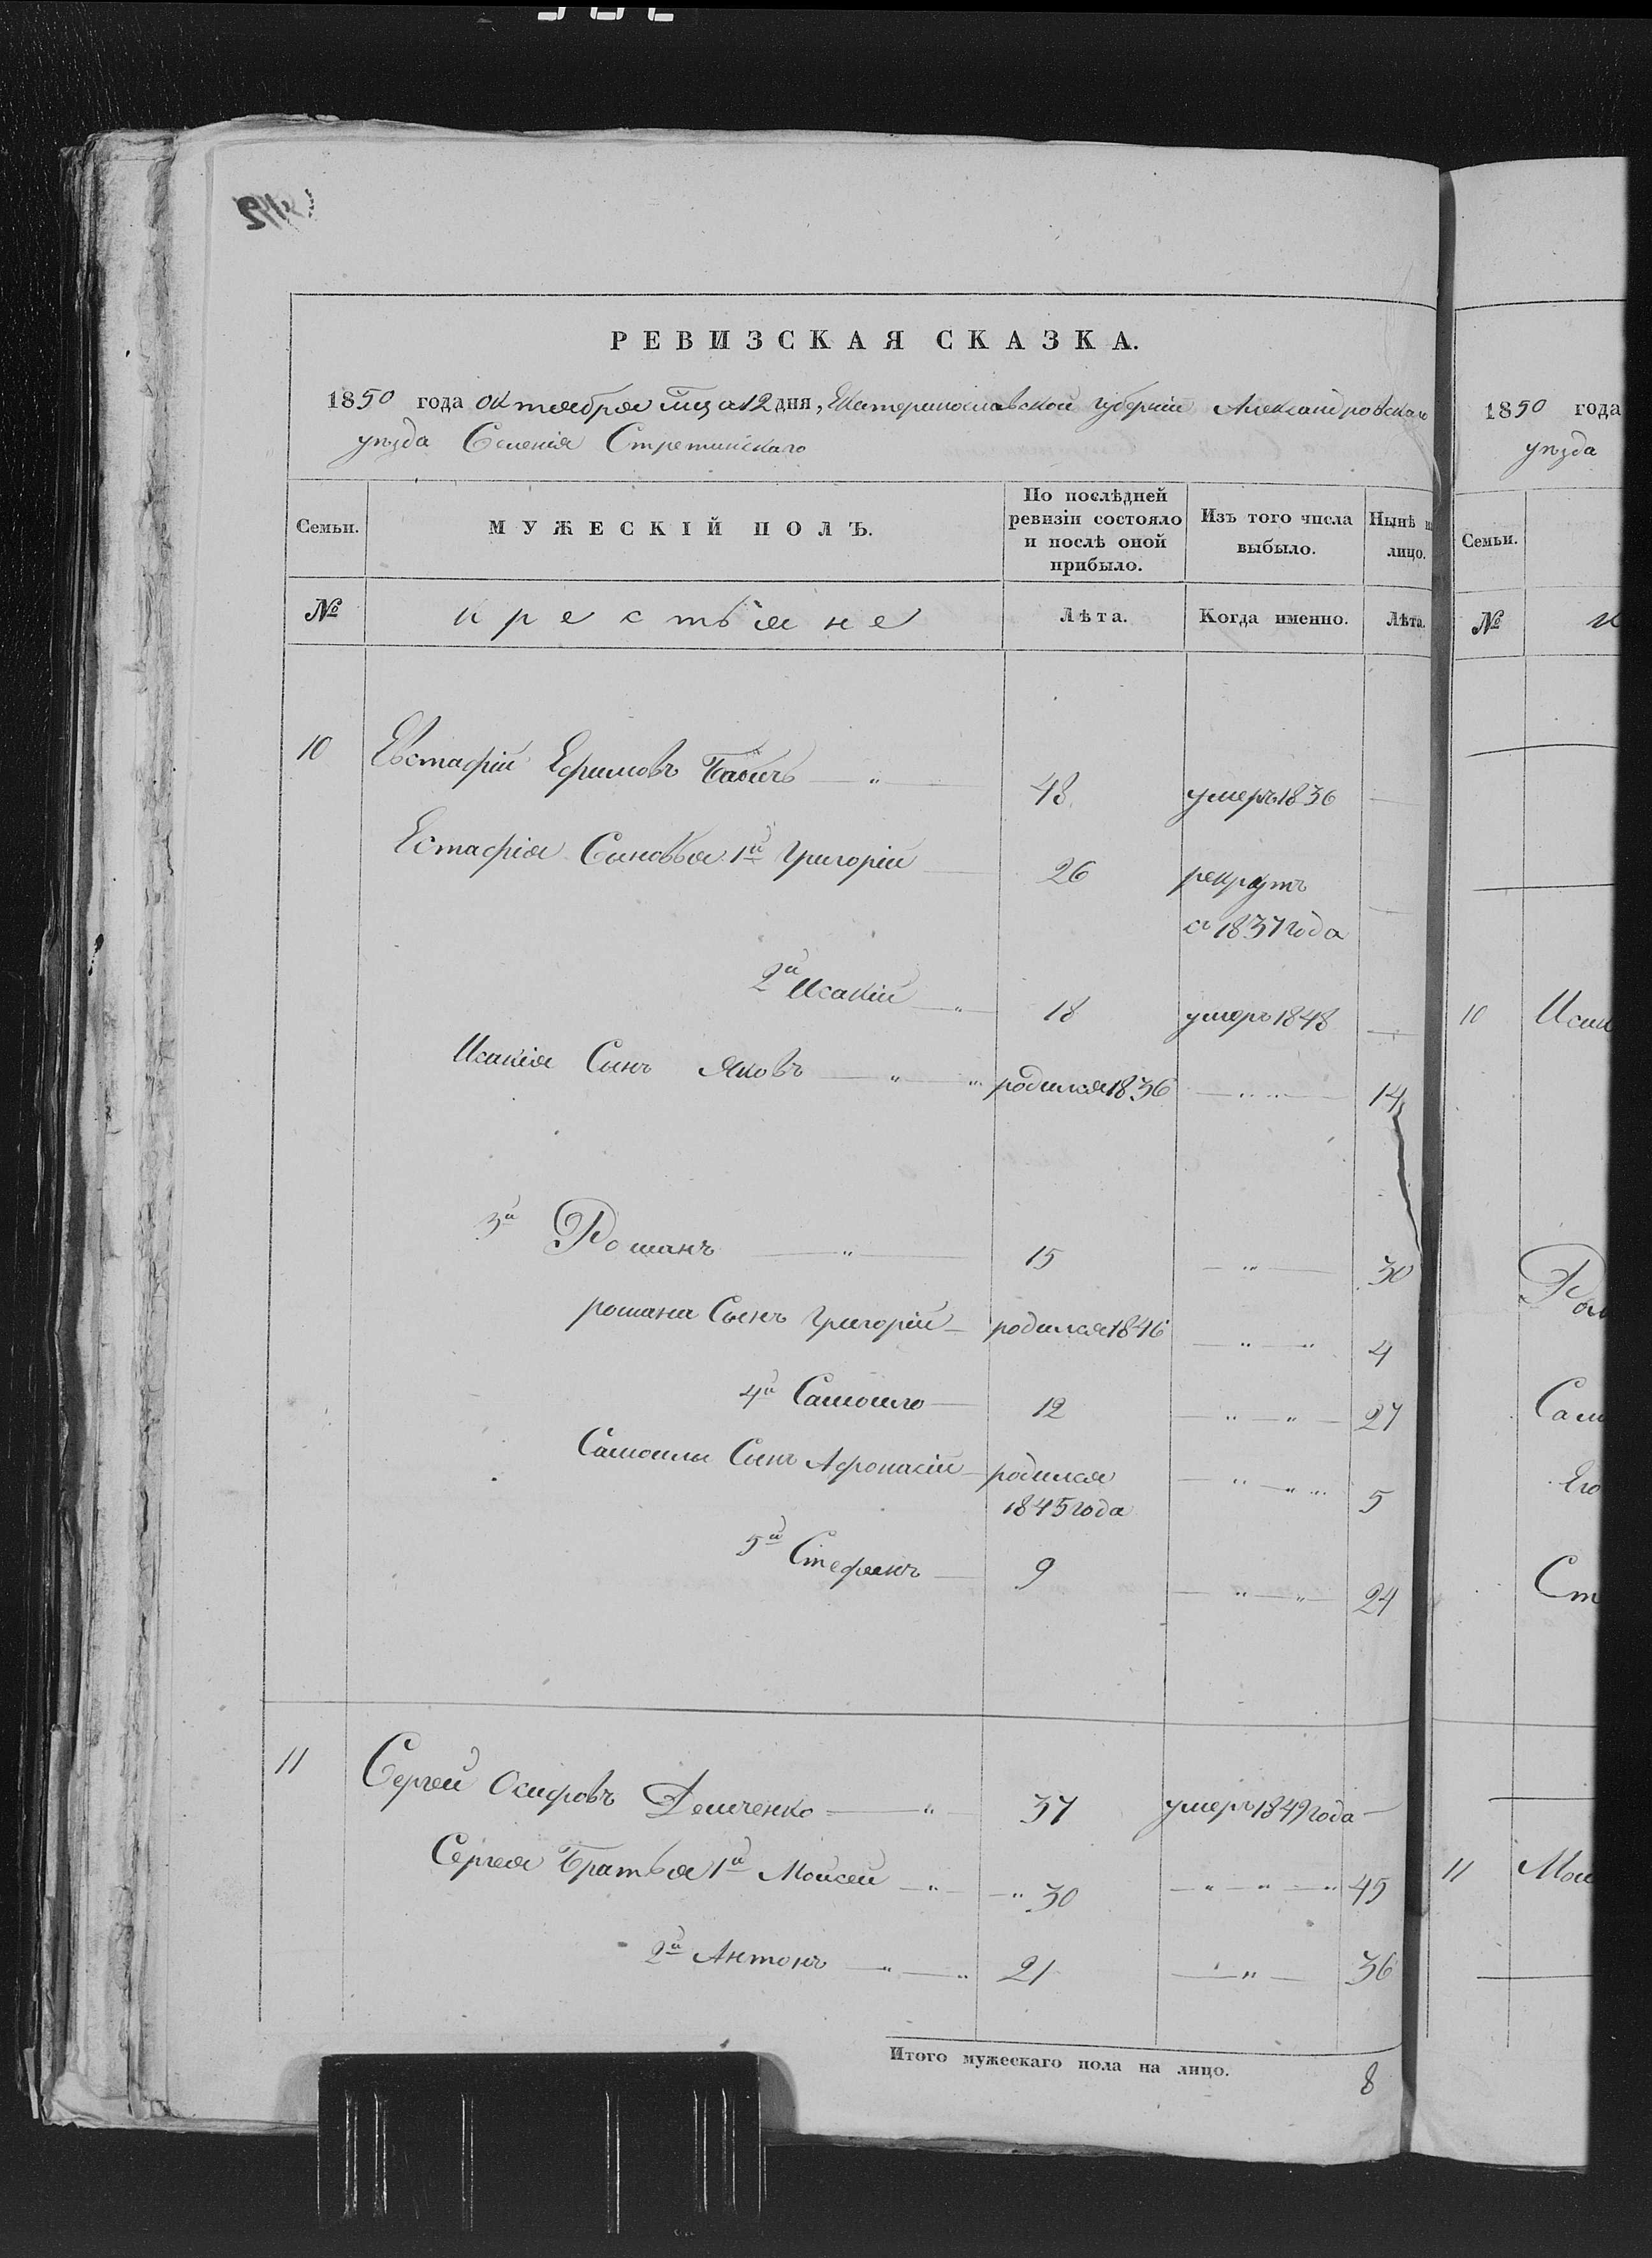 РЕВИЗСКАЯ СКАЗКА.
1850 года октября мца 12 дня, Екатеринославской губерніи Александровскаго
уѣзда Селенія Стретинскаго
Семьи.
МУЖЕСКІЙ ПОЛЪ.
По послѣдней ревизіи состояло и послѣ оной прибыло.
Изъ того числа выбыло.
Нынѣ н лицо.
№
крестьяне
Лѣта.
Когда именно.
Лѣта.
10 Евстафій Ефимовъ Бабичъ — 48 умеръ 1836 —
Естафія Сыновья 1й Григорій — 26 рекрутъ
съ 1837 года —
2й Исакій — 18 умеръ 1848 —
Исакія Сынъ Яковъ — родился 1836 — 14
3й Романъ — 15 — 30
романа Сынъ Григорій — родился 1846 — 4
4й Самойло — 12 — 27
Самойлы Сынъ Афонасій — родился — 5
1845 года
5й Стефанъ — 9 — 24
11 Сергей Осифовъ Демченко — 37 умеръ 1849 года —
Сергея Братья 1й Моисей — 30 — 45
2й Антонъ — 21 — 36
Итого мужескаго пола на лицо. 8
1850 года
уѣзда
Семьи.
№
10
11